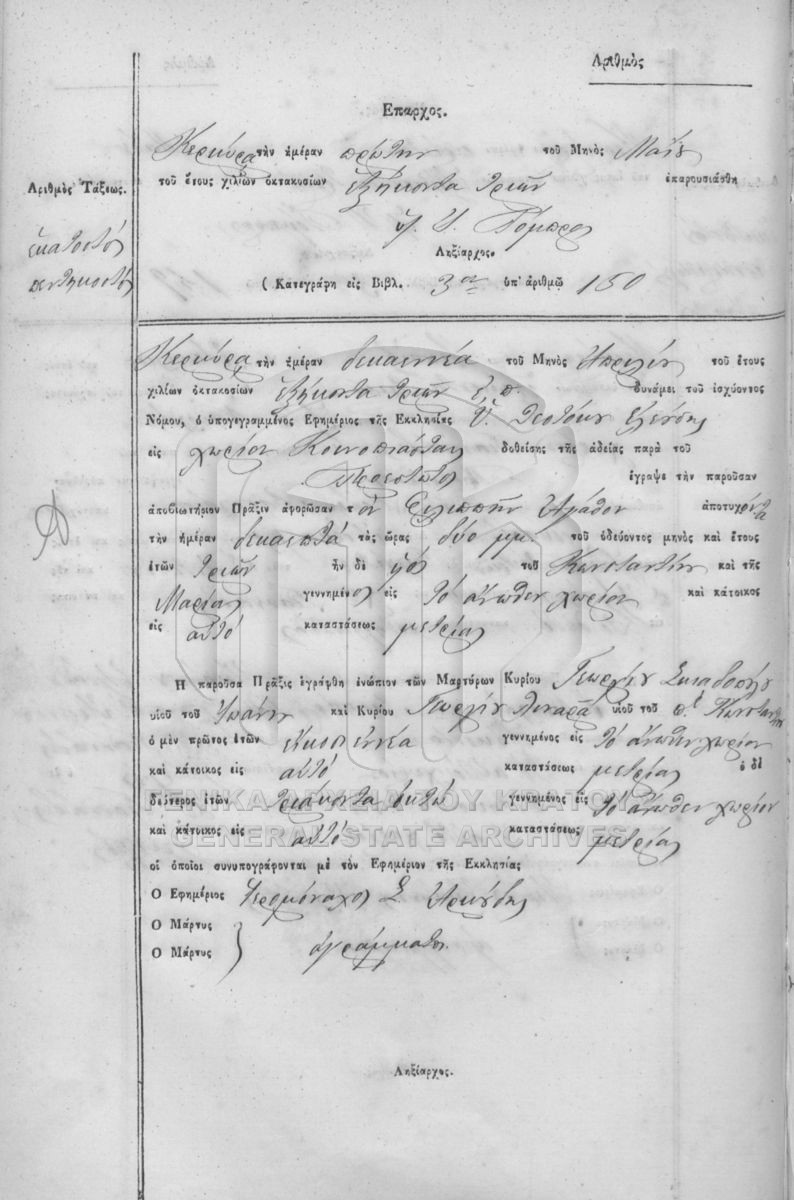 Αριθμὸς
Επαρχος.
Κερκύρα τὴν ἡμέραν πρώτην τοῦ Μηνὸς Μαΐου
τοῦ ἔτους χιλίων ὀκτακοσίων ἑξήκοντα τριῶν ἐπαρουσιάσθη
Ληξίαρχος.
( Κατεγράφη εἰς Βιβλ. 3ον ὑπ' ἀριθμῷ 150
Αριθμὸς Τάξεως.
ἑκατοστός
πεντηκοστός
Κερκύρα τὴν ἡμέραν δεκαεννέα τοῦ Μηνὸς Απριλίου τοῦ ἔτους
χιλίων ὀκτακοσίων ἑξήκοντα τριῶν ἐ. π. δυνάμει τοῦ ἰσχύοντος
Νόμου, ὁ ὑπογεγραμμένος Εφημέριος τῆς Εκκλησίας Ὑ. Θεοτόκου Ἐλεούσης
εἰς χωρίον Κοινοπιάσταις δοθείσης τῆς ἀδείας παρὰ τοῦ
Προεστῶτος ἔγραψε τὴν παροῦσαν
ἀποβιωτήριον Πρᾶξιν ἀφορῶσαν τὸν Φιλιππῆν Αγάθον ἀποτυχόντα
τὴν ἡμέραν δεκαεπτά τὰς ὥρας δύο μμ. τοῦ ὁδεύοντος μηνὸς καὶ ἔτους
ἐτῶν τριῶν ἦν δὲ υἱός τοῦ Κωνσταντίνου καὶ τῆς
Μαρίας γεννημένος εἰς τὸ ἄνωθεν χωρίον καὶ κάτοικος
εἰς αὐτό καταστάσεως μετρίας
Η παροῦσα Πρᾶξις ἐγράφθη ἐνώπιον τῶν Μαρτύρων Κυρίου Γεωργίου Σκιαδοπούλου
υἱοῦ τοῦ Ἰωάννου καὶ Κυρίου Γεωργίου Λιναρᾶ υἱοῦ τοῦ π.ὲ Κωνσταντίνου
ὁ μὲν πρῶτος ἐτῶν εἰκοσιεννέα γεννημένος εἰς τὸ ἄνωθεν χωρίον
καὶ κάτοικος εἰς αὐτό καταστάσεως μετρίας ὁ δὲ
δεύτερος ἐτῶν τριάκοντα ὀκτώ γεννημένος εἰς τὸ ἄνωθεν χωρίον
καὶ κάτοικος εἰς αὐτό καταστάσεως μετρίας
οἱ ὁποῖοι συνυπογράφονται μὲ τὸν Εφημέριον τῆς Εκκλησίας
Ο Εφημέριος Ἱερομόναχος Σ. Αρκούδης
Ο Μάρτυς
Ο Μάρτυς } ἀγράμματοι
Ληξίαρχος.
ΓΕΝΙΚΑ ΑΡΧΕΙΑ ΤΟΥ ΚΡΑΤΟΥΣ
GENERAL STATE ARCHIVES